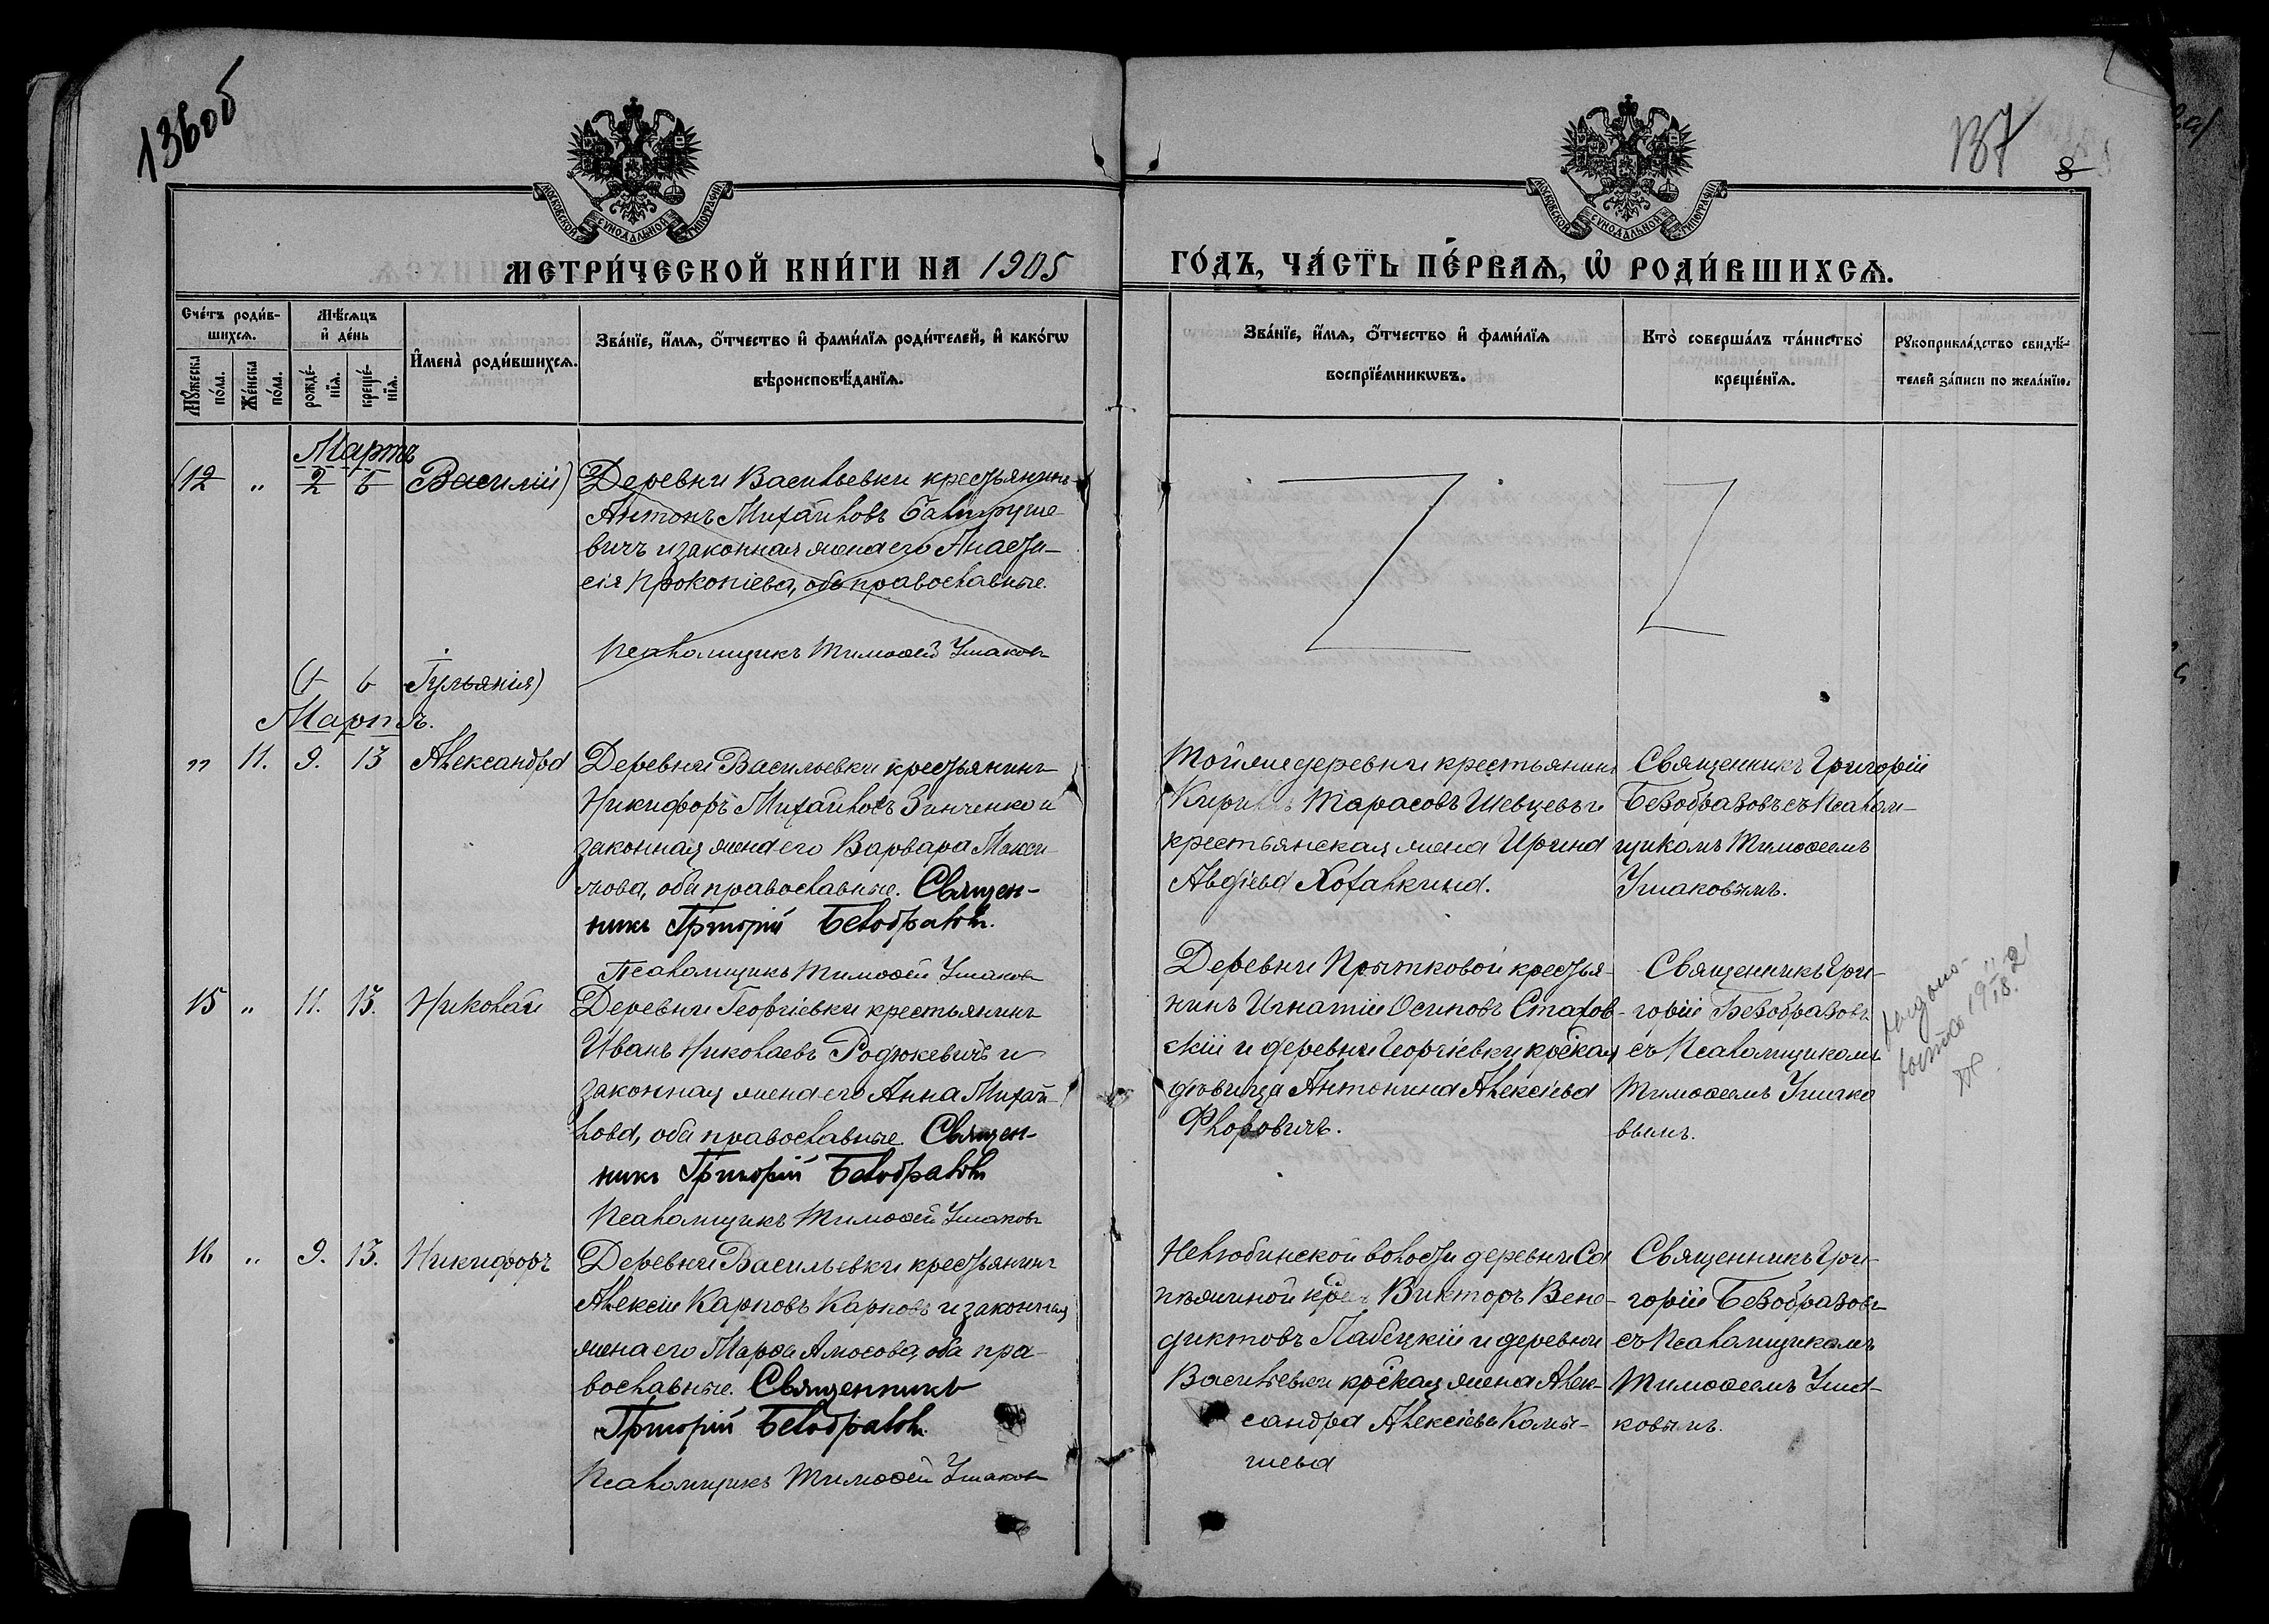 136об
137
8
МОСКОВСКОЙ СѴНОДАЛЬНОЙ ТИПОГРАФІИ
МОСКОВСКОЙ СѴНОДАЛЬНОЙ ТИПОГРАФІИ
МЕТРИ́ЧЕСКОЙ КНИ́ГИ НА 1905
ГО́ДЪ, ЧА́СТЬ ПЕ́РВАѦ, Ѡ҆ РОДИ́ВШИХСѦ.
Сче́тъ роди́в-
шихсѧ.
Мꙋ́жеска по́ла.
Же́нска по́ла.
Мѣ́сѧцъ
и҆ де́нь
рожде́-нїѧ.
креще́-нїѧ.
И҆мена̀ роди́вшихсѧ.
Зва́нїе, и҆́мѧ, ѻ҆́тчество и҆ фами́лїѧ роди́телей, и҆ како́гѡ
вѣроисповѣ́данїѧ.
Зва́нїе, и҆́мѧ, ѻ҆́тчество и҆ фами́лїѧ
воспрїе́мникѡвъ.
Кто̀ соверша́лъ та́инство
креще́нїѧ.
Рꙋкоприкла́дство свидѣ́-
телей за́писи по жела́нїю.
Мартъ
(12 " 2 6 Василій)
Деревни Васильевки крестьянинъ
Антонъ Михайловъ
вичъ и законная жена его Анаста-
сія Прокопіева, оба православные.
Псаломщикъ Тимоѳей Ушаковъ
6 Іуліанія)
Мартъ.
" 11. 9. 13 Александра
Деревни Васильевки крестьянинъ
Никифоръ Михайловъ Зинченко и
законная жена его Варвара Макси-
мова, оба православные. Священ-
никъ Григорій Безобразовъ.
Псаломщикъ Тимоѳей Ушаковъ
Той же деревни крестьянинъ
Кириллъ Тарасовъ Шевцевъ и
крестьянская жена Ирина
Авдіева Хохалкина.
Священникъ Григорій
Безобразовъ съ Псалом-
щикомъ Тимоѳеемъ
Ушаковымъ.
15 " 11. 13. Николай
Деревни Георгіевки крестьянинъ
Иванъ Николаевъ Родюкевичъ и
законная жена его Анна Михай-
лова, оба православные. Священ-
никъ Григорій Безобразовъ
Псаломщикъ Тимоѳей Ушаковъ
Деревни Прытковой крестья-
нинъ Игнатій Осиповъ Стахов-
скій и деревни Георгіевки кр̃ская
дѣвица Антонина Алексіева
Флоровичъ.
Священникъ Гри-
горій Безобразовъ
съ Псаломщикомъ
Тимоѳеемъ Ушако
вымъ.
16 " 9. 13. Никифоръ
Деревни Васильевки крестьянинъ
Алексій Карповъ Карповъ и законная
жена его Марѳа Амосова, оба пра-
вославные. Священникъ
Григорій Безобразовъ.
Псаломщикъ Тимоѳей Ушаковъ
Нелюбинской волости деревни
Викторъ Вене-
диктовъ и деревни
Васильевки кр̃ская жена Алек-
сандра Алексіева Камы-
шева
Священникъ Гри-
горій Безобразовъ
съ Псаломщикомъ
Тимоѳеемъ Уша-
ковымъ.